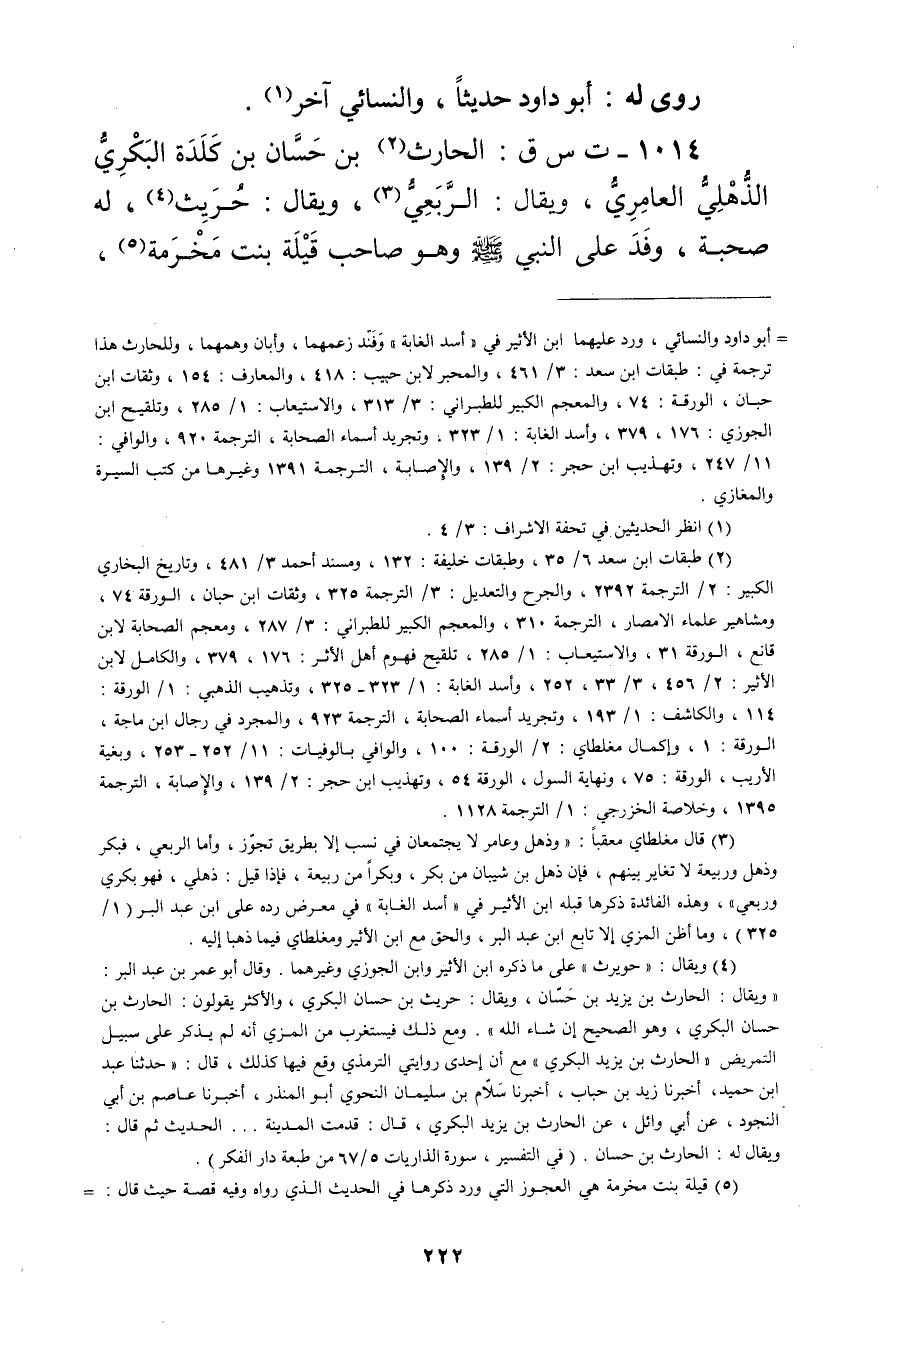 روى له : أبو داود حديثاً ، والنسائي آخر(١) .
١٠١٤ ـ ت س ق : الحارث(٢) بن حَسَّان بن كَلَدَة البَكْرِيُّ
الذُّهْلِيُّ العامِرِيُّ ، ويقال : الرَّبَعِيُّ(٣) ، ويقال : حُرَيث(٤) ، له
صحبة ، وفَدَ على النبي ﷺ وهو صاحب قَيْلَة بنت مَخْرَمة(٥) ،
= أبو داود والنسائي ، ورد عليهما ابن الأثير في « أسد الغابة » وَفَنّد زعمهما ، وأبان وهمهما ، وللحارث هذا
ترجمة في : طبقات ابن سعد : ٣/ ٤٦١ ، والمحبر لابن حبيب : ٤١٨ ، والمعارف : ١٥٤ ، وثقات ابن
حبان ، الورقة : ٧٤ ، والمعجم الكبير للطبراني : ٣/ ٣١٣ ، والاستيعاب : ١/ ٢٨٥ ، وتلقيح ابن
الجوزي : ١٧٦ ، ٣٧٩ ، وأسد الغابة : ١/ ٣٢٣ ، وتجريد أسماء الصحابة ، الترجمة ٩٢٠ ، والوافي :
١١/ ٢٤٧ ، وتهذيب ابن حجر : ٢/ ١٣٩ ، والإصابة ، الترجمة ١٣٩١ وغيرها من كتب السيرة
والمغازي .
(١) انظر الحديثين في تحفة الاشراف : ٣/ ٤ .
(٢) طبقات ابن سعد ٦/ ٣٥ ، وطبقات خليفة : ١٣٢ ، ومسند أحمد ٣/ ٤٨١ ، وتاريخ البخاري
الكبير : ٢/ الترجمة ٢٣٩٢ ، والجرح والتعديل : ٣/ الترجمة ٣٢٥ ، وثقات ابن حبان ، الورقة ٧٤ ،
ومشاهير علماء الامصار ، الترجمة ٣١٠ ، والمعجم الكبير للطبراني : ٣/ ٢٨٧ ، ومعجم الصحابة لابن
قانع ، الورقة ٣١ ، والاستيعاب : ١/ ٢٨٥ ، تلقيح فهوم أهل الأثر : ١٧٦ ، ٣٧٩ ، والكامل لابن
الأثير : ٢/ ٤٥٦ ، ٣/ ٣٣ ، ٢٥٢ ، وأسد الغابة : ١/ ٣٢٣ ـ ٣٢٥ ، وتذهيب الذهبي : ١/ الورقة :
١١٤ ، والكاشف : ١/ ١٩٣ ، وتجريد أسماء الصحابة ، الترجمة ٩٢٣ ، والمجرد في رجال ابن ماجة ،
الورقة : ١ ، وإكمال مغلطاي : ٢/ الورقة : ١٠٠ ، والوافي بالوفيات : ١١/ ٢٥٢ ـ ٢٥٣ ، وبغية
الأريب ، الورقة : ٧٥ ، ونهاية السول ، الورقة ٥٤ ، وتهذيب ابن حجر : ٢/ ١٣٩ ، والإصابة ، الترجمة
١٣٩٥ ، وخلاصة الخزرجي : ١/ الترجمة ١١٢٨ .
(٣) قال مغلطاي معقباً : « وذهل وعامر لا يجتمعان في نسب إلا بطريق تجوّز ، وأما الربعي ، فبكر
وذهل وربيعة لا تغاير بينهم ، فإن ذهل بن شيبان من بكر ، وبكراً من ربيعة ، فإذا قيل : ذهلي ، فهو بكري
وربعي» ، وهذه الفائدة ذكرها قبله ابن الأثير في « أسد الغابة » في معرض رده على ابن عبد البر ( ١/
٣٢٥ ) ، وما أظن المزي إلا تابع ابن عبد البر ، والحق مع ابن الأثير ومغلطاي فيما ذهبا إليه .
(٤) ويقال : « حويرث » على ما ذكره ابن الأثير وابن الجوزي وغيرهما . وقال أبو عمر بن عبد البر :
« ويقال : الحارث بن يزيد بن حَسّان ، ويقال : حريث بن حسان البكري ، والأكثر يقولون : الحارث بن
حسان البكري ، وهو الصحيح إن شاء الله » . ومع ذلك فيستغرب من المزي أنه لم يذكر على سبيل
التمريض « الحارث بن يزيد البكري » مع أن إحدى روايتي الترمذي وقع فيها كذلك ، قال : « حدثنا عبد
ابن حميد، أخبرنا زيد بن حباب ، أخبرنا سَلاّم بن سليمان النحوي أبو المنذر ، أخبرنا عاصم بن أبي
النجود ، عن أبي وائل ، عن الحارث بن يزيد البكري ، قال : قدمت المدينة . . . الحديث ثم قال :
ويقال له : الحارث بن حسان . ( في التفسير ، سورة الذاريات ٦٧/٥ من طبعة دار الفكر ) .
(٥) قيلة بنت مخرمة هي العجوز التي ورد ذكرها في الحديث الذي رواه وفيه قصة حيث قال : =
٢٢٢